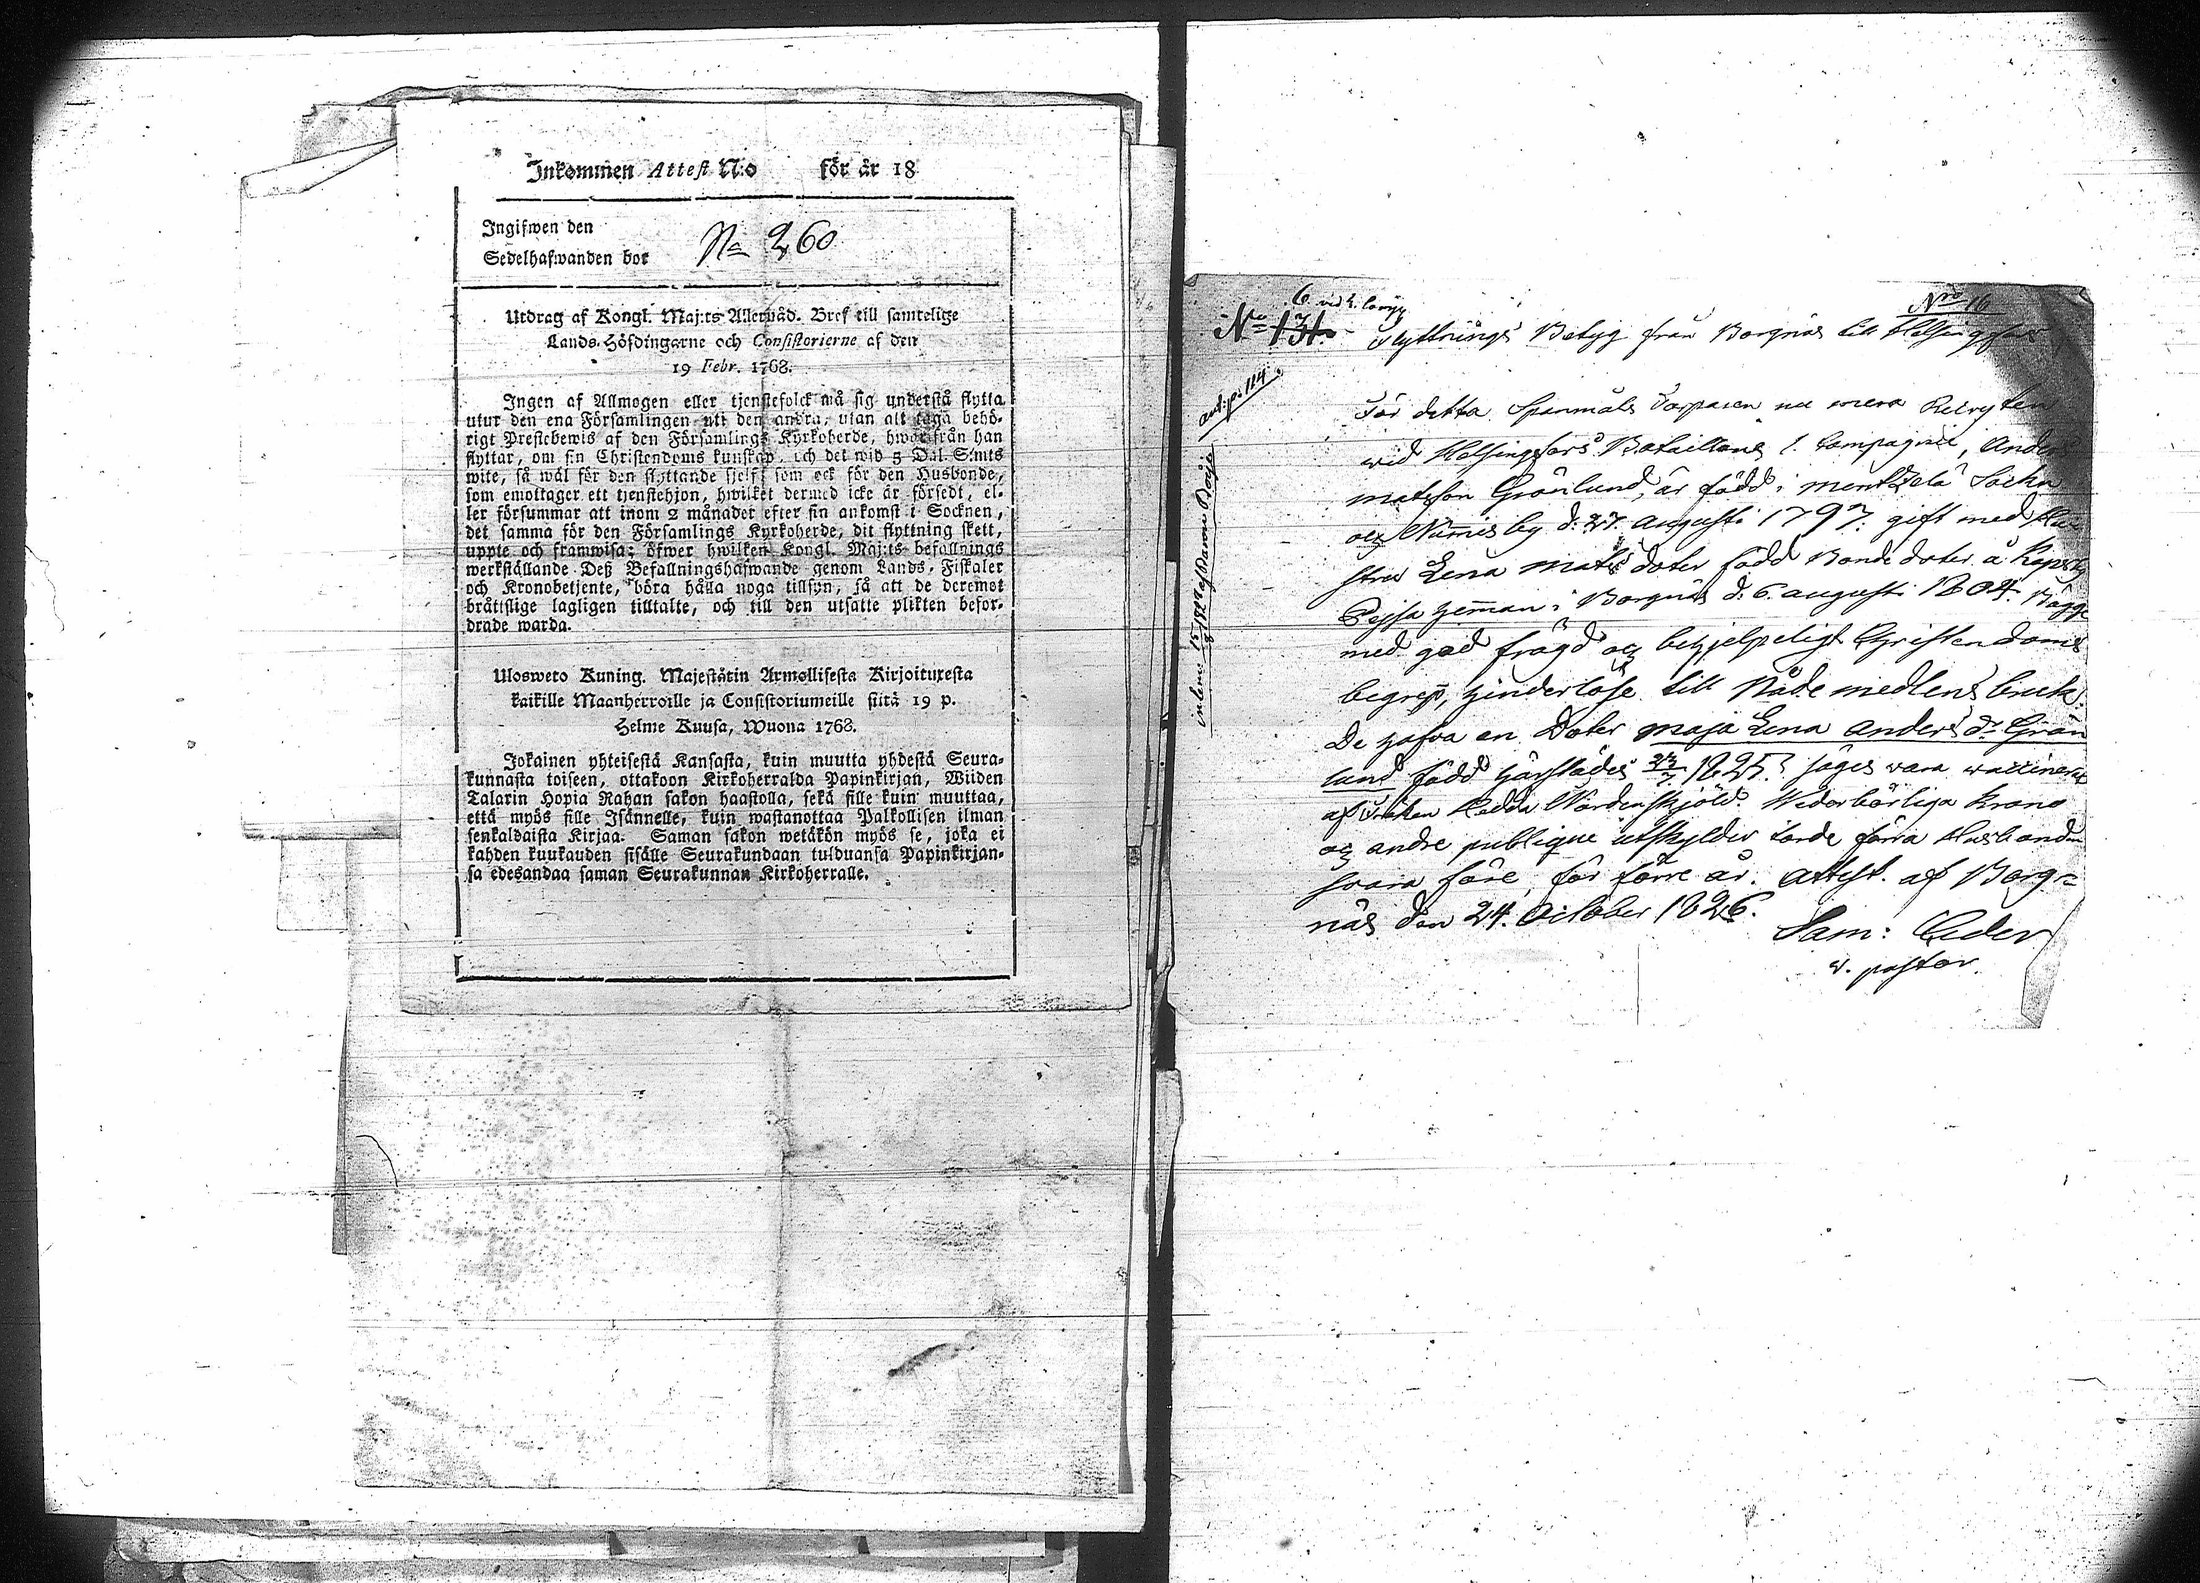 Inkommen Attest N:o för år 18
Ingifwen den
Sedelhafwanden bor
No 260
Utdrag af Kongl. Maj:ts Allernåd. Bref till samtelige
Lands-Höfdingarne och Consistorierne af den
19 Febr. 1768.
Ingen af Allmogen eller tjenstefolck må sig understå flytta
utur den ena Församlingen uti den andra, utan att taga behö-
rigt Prestebewis af den Församlings Kyrkoherde, hwarifrån han
flyttar, om sin Christendoms kunskap, och det wid 5 Dal. S:mts
wite, så wäl för den flyttande sjelf som ock för den Husbonde,
som emottager ett tjenstehjon, hwilket dermed icke är försedt, el-
ler försummar att inom 2 månader efter sin ankomst i Socknen,
det samma för den Församlings Kyrkoherde, dit flyttning skett,
uppte och framwisa; öfwer hwilken Kongl. Maj:ts befallnings
werkställande Deß Befallningshafwande genom Lands-Fiskaler
och Kronobetjente, böra hålla noga tillsyn, så att de deremot
bråtislige lagligen tilltalte, och till den utsatte plikten befor-
drade warda.
Ulosweto Kuning. Majestätin Armollisesta Kirjoituxesta
kaikille Maanherroille ja Consistoriumeille siitä 19 p.
Helme Kuusa, Wuona 1768.
Jokainen yhteisestä Kansasta, kuin muutta yhdestä Seura-
kunnasta toiseen, ottakoon Kirkoherralda Papinkirjan, Wiiden
Talarin Hopia Rahan sakon haastolla, sekä sille kuin muuttaa,
että myös sille Isännelle, kuin wastanottaa Palkollisen ilman
senkaldaista Kirjaa. Saman sakon wetäkön myös se, joka ei
kahden kuukauden sisälle Seurakundaan tulduansa Papinkirjan-
sa edesandaa saman Seurakunnan Kirkoherralle.
6
No 131.
Nro 16
Flyttnings Betyg från Borgnäs till Helsingfors
För detta Spanmåls Torparen nu mera Recryten
wid Helsingfors Bataillons 1. Compagnie, Anders
Matsson Grönlund, är född i Mentzälä Sockn
och Numis by d: 27. Augusti 1797. gift med Hu-
stru Lena Mats doter född Bonde doter å
i Borgnäs d. 6. Augusti 1804. Bägge
med god frägd och behjelpeligt Christendoms
begrep, hinderlöse till Nåde medlens bruk.
De hafva en Doter Maja Lena Anders dr Grön
lund född härstädes 1825. säges vara vaccinerad
af Fröken Hedda Nordenskjöld. Wederbörliga Krono
och andre publique utskylder torde förra Husbonden
svara före för förre år. Attest. af Borg-
näs den 24. October 1826.
Sam: Ceder
v. pastor.